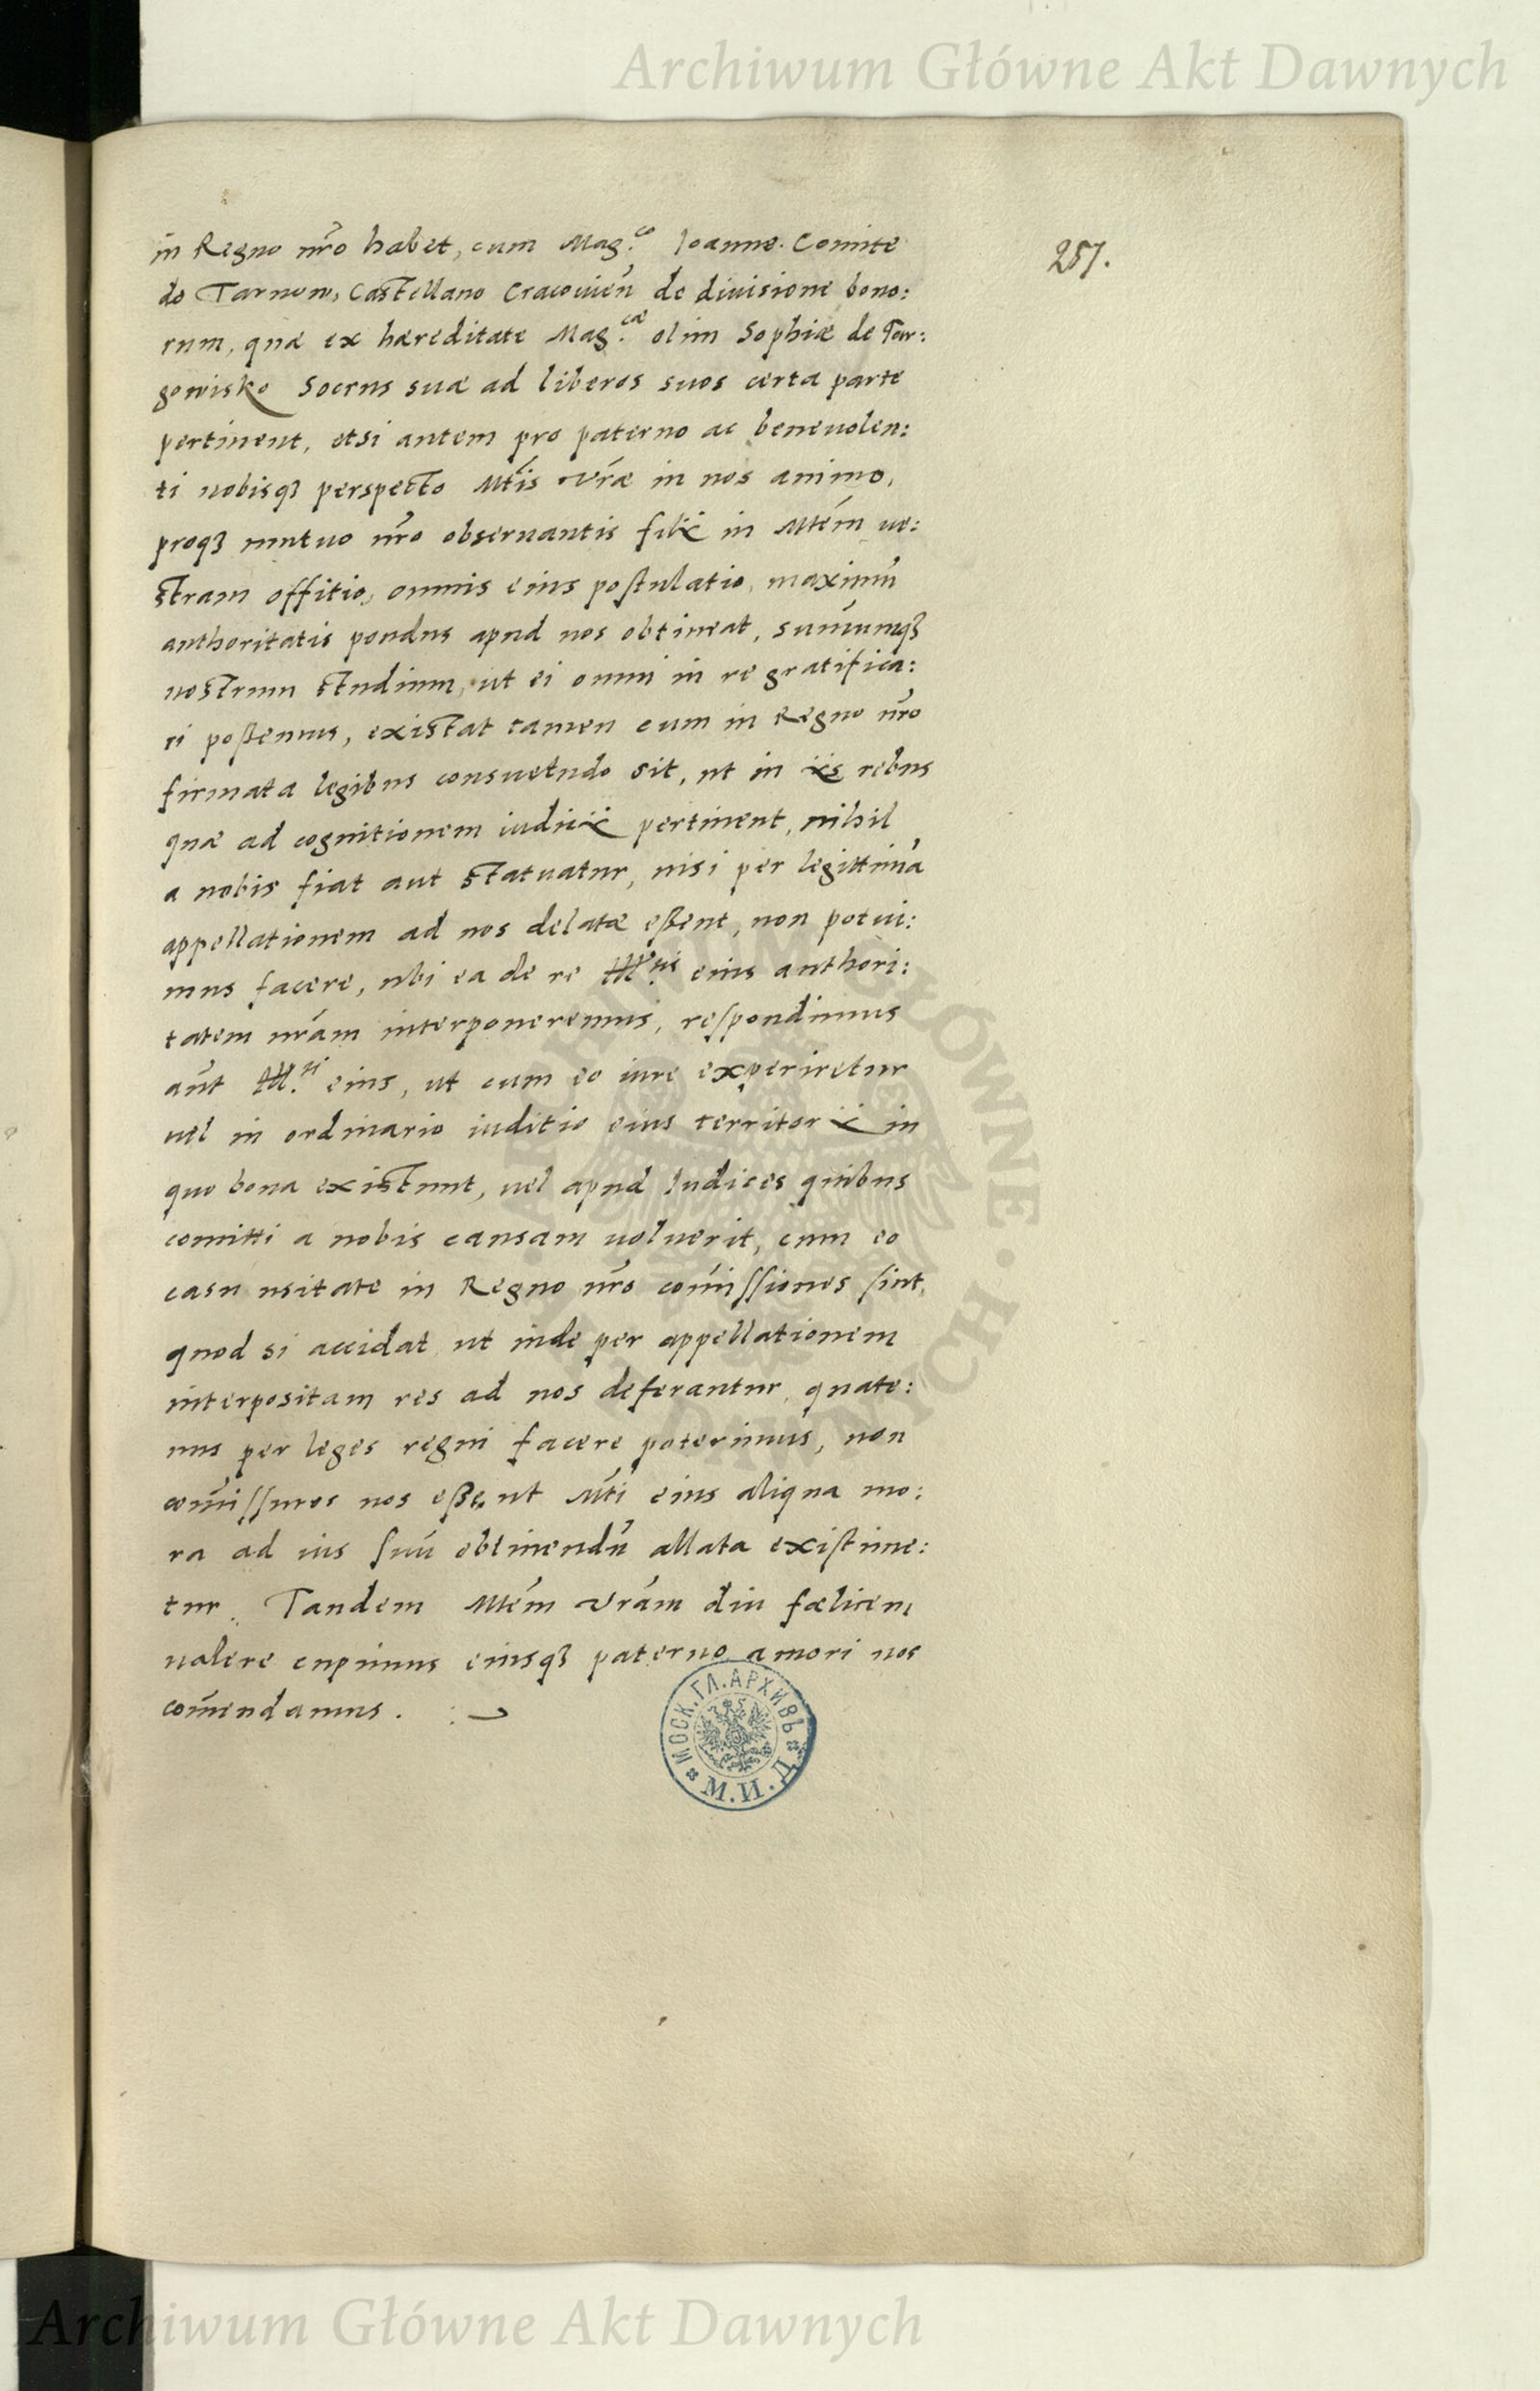 Archiwum Główne Akt Dawnych
257.
in Regno nr̃o habet, cum Mag.co Ioanne Comite
de Tarnow, Castellano Cracouień de diuisione bono:
rum, quæ ex hæreditate Mag.cæ olim Sophiæ de Tar:
gowisko Socrus suæ ad liberos suos certa parte
pertinent, etsi autem pro paterno ac beneuolen:
ti nobisq3 perspecto Mt̃is Vr̃æ in nos animo,
proq3 mutuo nr̃o obseruantis filii in Mtẽm ue:
stram offitio, omnis eius postulatio, maximũ
authoritatis pondus apud nos obtineat, sum̃umq3
nostrum studium, ut ei omni in re gratifica:
ri possemus, existat tamen cum in Regno nr̃o
firmata legibus consuetudo sit, ut in iis rebus
quæ ad cognitionem iudicii pertinent, nihil
a nobis fiat aut statuatur, nisi per legittimã
appellationem ad nos delatæ essent, non potui:
mus facere, ubi ea de re Ill.tis eius authori:
tatem nrãm interponeremus, respondimus
aũt Ill.ti eius, ut cum eo iure experiretur
uel in ordinario iuditio eius territorii in
quo bona existunt, uel apud Iudices quibus
comitti a nobis causam uoluerit, cum eo
casu usitate in Regno nr̃o com̃issiones sint,
quod si accidat ut inde per appellationem
interpositam res ad nos deferantur, quate:
nus per leges regni facere poterimus, non
com̃issuros nos esse, ut Mt̃i eius aliqua mo:
ra ad ius suũ obtinendũ allata existime:
tur. Tandem Mtẽm Vrãm diu fœlicem
ualere cupimus eiusq3 paterno amori nos
com̃endamus.
МОСК.ГЛ.АРХИВЪ
М.И.Д.
ARCHIWUM GŁÓWNE AKT DAWNYCH
Archiwum Główne Akt Dawnych